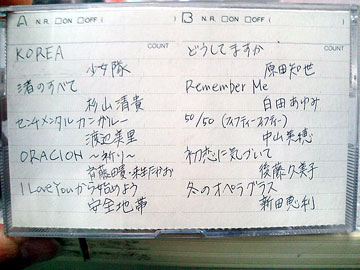 A N.R. □ON □OFF ( )
COUNT
KOREA
少女隊
渚のすべて
杉山清貴
センチメンタルカンガルー
渡辺美里
ORACION ～祈り～
斉藤由貴・来生たかお
I Love Youから始めよう
安全地帯
B N.R. □ON □OFF ( )
COUNT
どうしてますか
原田知世
Remember Me
白田あゆみ
50/50 (フィフティーフィフティー)
中山美穂
初恋に気づいて
後藤久美子
冬のオペラグラス
新田恵利